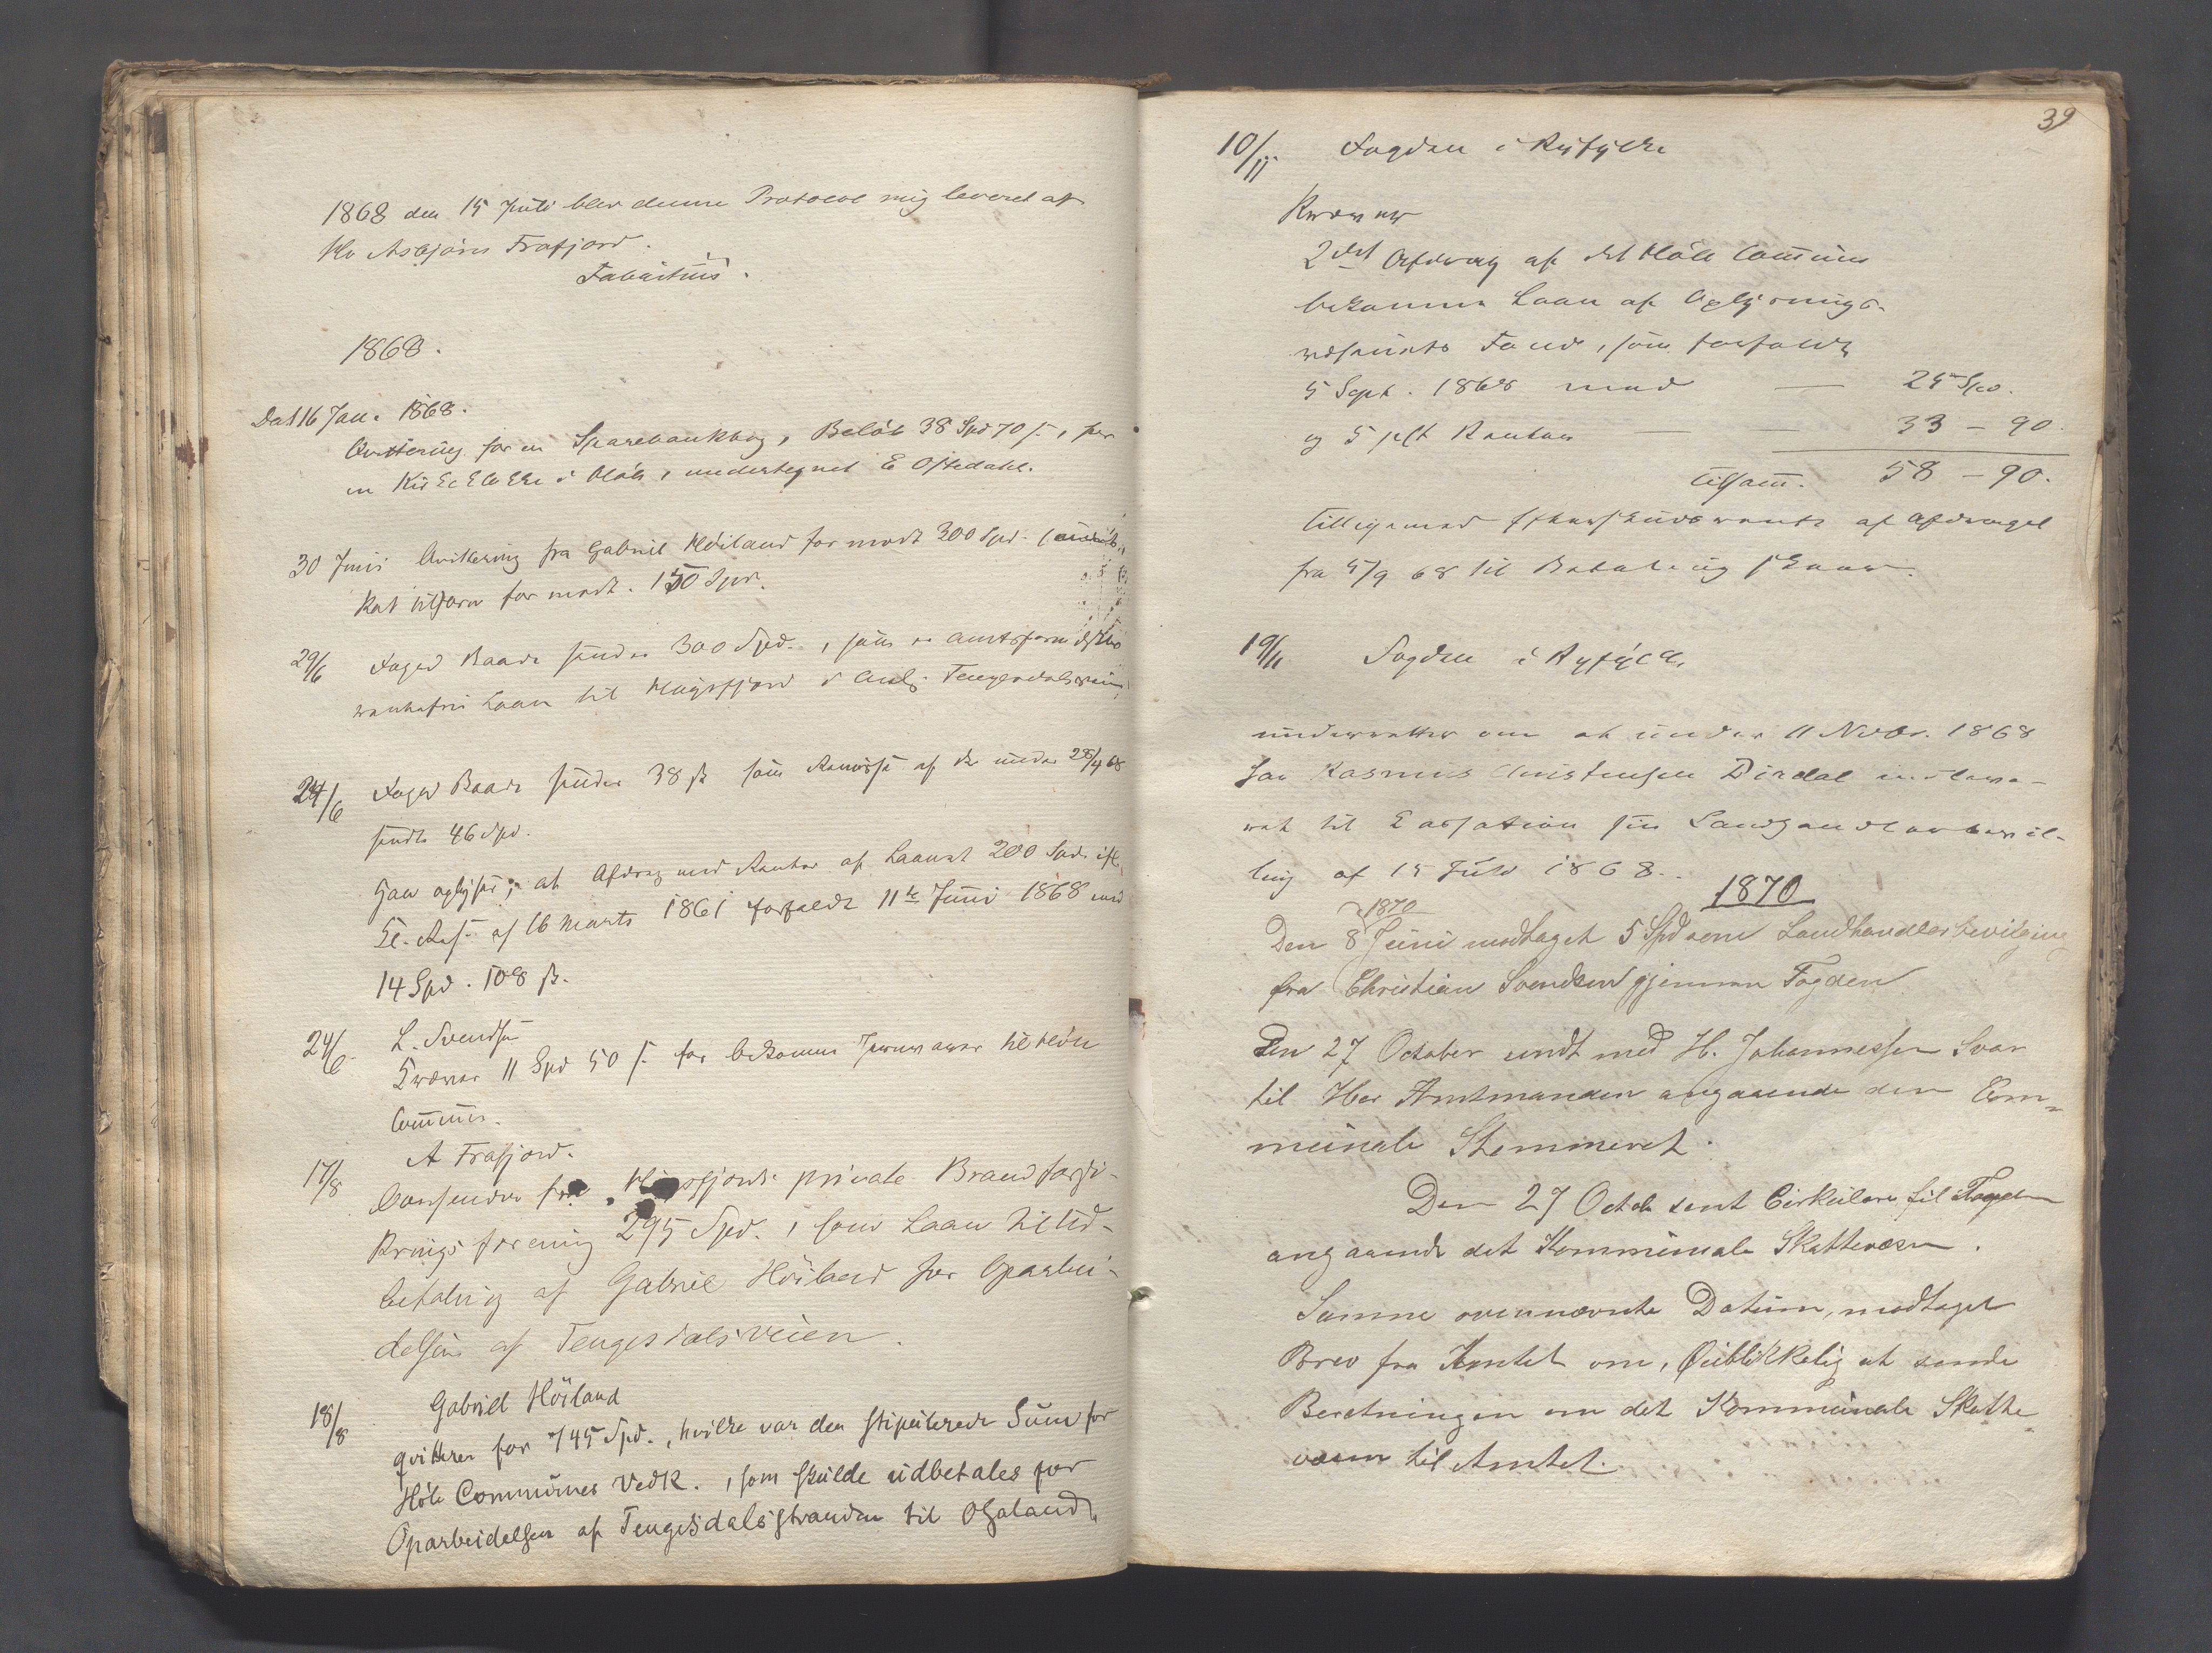 1868 den 15 Juli blev denne Protocol mig leveret af
Hr Asbjörn Frafjord.
Fabritius.
1868.
Dat 16 Jan. 1868.
Qvittering for en Sparebankbog, Belöb 38 Spd 70 s., for
en Kirkeklokke i Höle, undertegnet E Oftedahl.
30 Juni Qvittering fra Gabriel Höiland for modt 300 Spd.
for modt. 150 Spd.
29/6 Foged Baade sender 300 Spd., som
rentefrit Laan til Høgsfjord i Anl.
24/6 Foged Baade sender 38 s som af de under 28/4 68
sendte 46 Spd.
Han oplyser, at Afdrag med Renter af Laanet 200 Spd ifl.
Kl. Res. af 16 Marts 1861 forfaldt 11te Juni 1868 med
14 Spd. 108 s.
24/6 L. Svendsen
Kræver 11 Spd 50 s. for bekomne til Höle
Commune.
A Frafjord.
17/8 fra Høgsfjords private Brandforsi-
krings forening 295 Spd., som Laan til Ud-
betaling af Gabriel Höiland for Oparbei-
delsen af Tengesdalsveien.
18/8 Gabriel Höiland
qvitterer for 745 Spd., hvilke var den stipulerede Sum for
Höle Communes Vedk., som skulde udbetales for
Oparbeidelsen af Tengesdalsstranden til
39
10/11 Fogden i Ryfylke
Kræver
2det Afdrag af det Höle Commune
bekomne Laan af Oplysnings-
væsenets Fond, som forfaldt
5 Sept. 1868 med — 25 Spd.
og 5 pCt Renter — — 33 - 90.
tilsam. 58 - 90.
tilligemed af Afdraget
fra 5/9 68 til Betaling skeer.
19/11 Fogden i Ryfylke,
underretter om at under 11 Novbr. 1868
har Rasmus Christensen Dirdal indleve-
ret til Cassation sin Landhandlerbevil-
ling af 15 Juli 1868.
1870
1870
Den 8 Juni modtaget 5 Spd som Landhandlerbevilging
fra Christian Svendsen gjennem Fogden
Den 27 October sendt med H. Johannessen Svar
til Her Amtmanden angaaende den Com=
munale Stemmeret.
Den 27 Octob sent Cirkulære til Fogden
angaaende det Kommunale Skattevæsen.
Samme ovennævnte Datum, modtaget
Brev fra Amtet om, Øieblikkelig at sende
Beretningen om det Kommunale Skatte
væsen til Amtet.